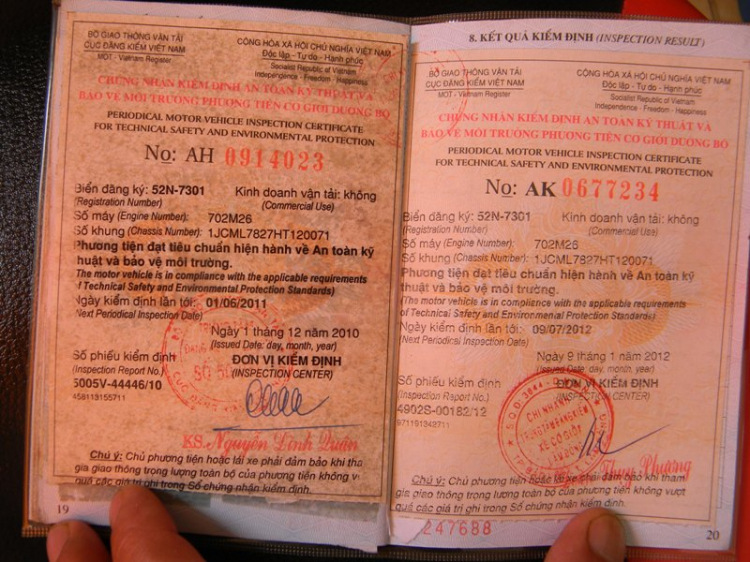 BỘ GIAO THÔNG VẬN TẢI
CỤC ĐĂNG KIỂM VIỆT NAM
MOT - Vietnam Register
CỘNG HÒA XÃ HỘI CHỦ NGHĨA VIỆT NAM
Độc lập - Tự do - Hạnh phúc
Socialist Republic of Vietnam
Independence - Freedom - Happiness
CHỨNG NHẬN KIỂM ĐỊNH AN TOÀN KỸ THUẬT VÀ
BẢO VỆ MÔI TRƯỜNG PHƯƠNG TIỆN CƠ GIỚI ĐƯỜNG BỘ
PERIODICAL MOTOR VEHICLE INSPECTION CERTIFICATE
FOR TECHNICAL SAFETY AND ENVIRONMENTAL PROTECTION
No: AH 0914023
Biển đăng ký: 52N-7301 Kinh doanh vận tải: không
(Registration Number) (Commercial Use)
Số máy (Engine Number): 702M26
Số khung (Chassis Number): 1JCML7827HT120071
Phương tiện đạt tiêu chuẩn hiện hành về An toàn kỹ
thuật và bảo vệ môi trường.
The motor vehicle is in compliance with the applicable requirements
f Technical Safety and Environmental Protection Standards)
Ngày kiểm định lần tới: 01/06/2011
Next Periodical Inspection Date)
Ngày 1 tháng 12 năm 2010
(Issued Date: day, month, year)
Số phiếu kiểm định ĐƠN VỊ KIỂM ĐỊNH
(Inspection Report No.) (INSPECTION CENTER)
5005V-44446/10
458113155711
KS. Nguyễn Đình Quân
Chú ý: Chủ phương tiện hoặc lái xe phải đảm bảo khi tha
gia giao thông trọng lượng toàn bộ của phương tiện không v
quá các giá trị ghi trong Sổ chứng nhận kiểm định.
19
8. KẾT QUẢ KIỂM ĐỊNH (INSPECTION RESULT)
BỘ GIAO THÔNG VẬN TẢI
CỤC ĐĂNG KIỂM VIỆT NAM
MOT - Vietnam Register
CỘNG HÒA XÃ HỘI CHỦ NGHĨA VIỆT NAM
Độc lập - Tự do - Hạnh phúc
Socialist Republic of Vietnam
Independence - Freedom - Happiness
CHỨNG NHẬN KIỂM ĐỊNH AN TOÀN KỸ THUẬT VÀ
BẢO VỆ MÔI TRƯỜNG PHƯƠNG TIỆN CƠ GIỚI ĐƯỜNG BỘ
PERIODICAL MOTOR VEHICLE INSPECTION CERTIFICATE
FOR TECHNICAL SAFETY AND ENVIRONMENTAL PROTECTION
No: AK 0677234
Biển đăng ký: 52N-7301 Kinh doanh vận tải: không
(Registration Number) (Commercial Use)
Số máy (Engine Number): 702M26
Số khung (Chassis Number): 1JCML7827HT120071
Phương tiện đạt tiêu chuẩn hiện hành về An toàn kỹ
thuật và bảo vệ môi trường.
(The motor vehicle is in compliance with the applicable requirements
of Technical Safety and Environmental Protection Standards)
Ngày kiểm định lần tới: 09/07/2012
(Next Periodical Inspection Date)
Ngày 9 tháng 1 năm 2012
(Issued Date: day, month, year)
Số phiếu kiểm định ĐƠN VỊ KIỂM ĐỊNH
(Inspection Report No.) (INSPECTION CENTER)
4902S-00182/12
971191342711
CHI NHÁNH
TRUNG TÂM ĐĂNG KIỂM
XE CƠ GIỚI
Phương
Chú ý: Chủ phương tiện hoặc lái xe phải đảm bảo khi tham
gia giao thông trọng lượng toàn bộ của phương tiện không vượt
quá các giá trị ghi trong Sổ chứng nhận kiểm định.
247688
20